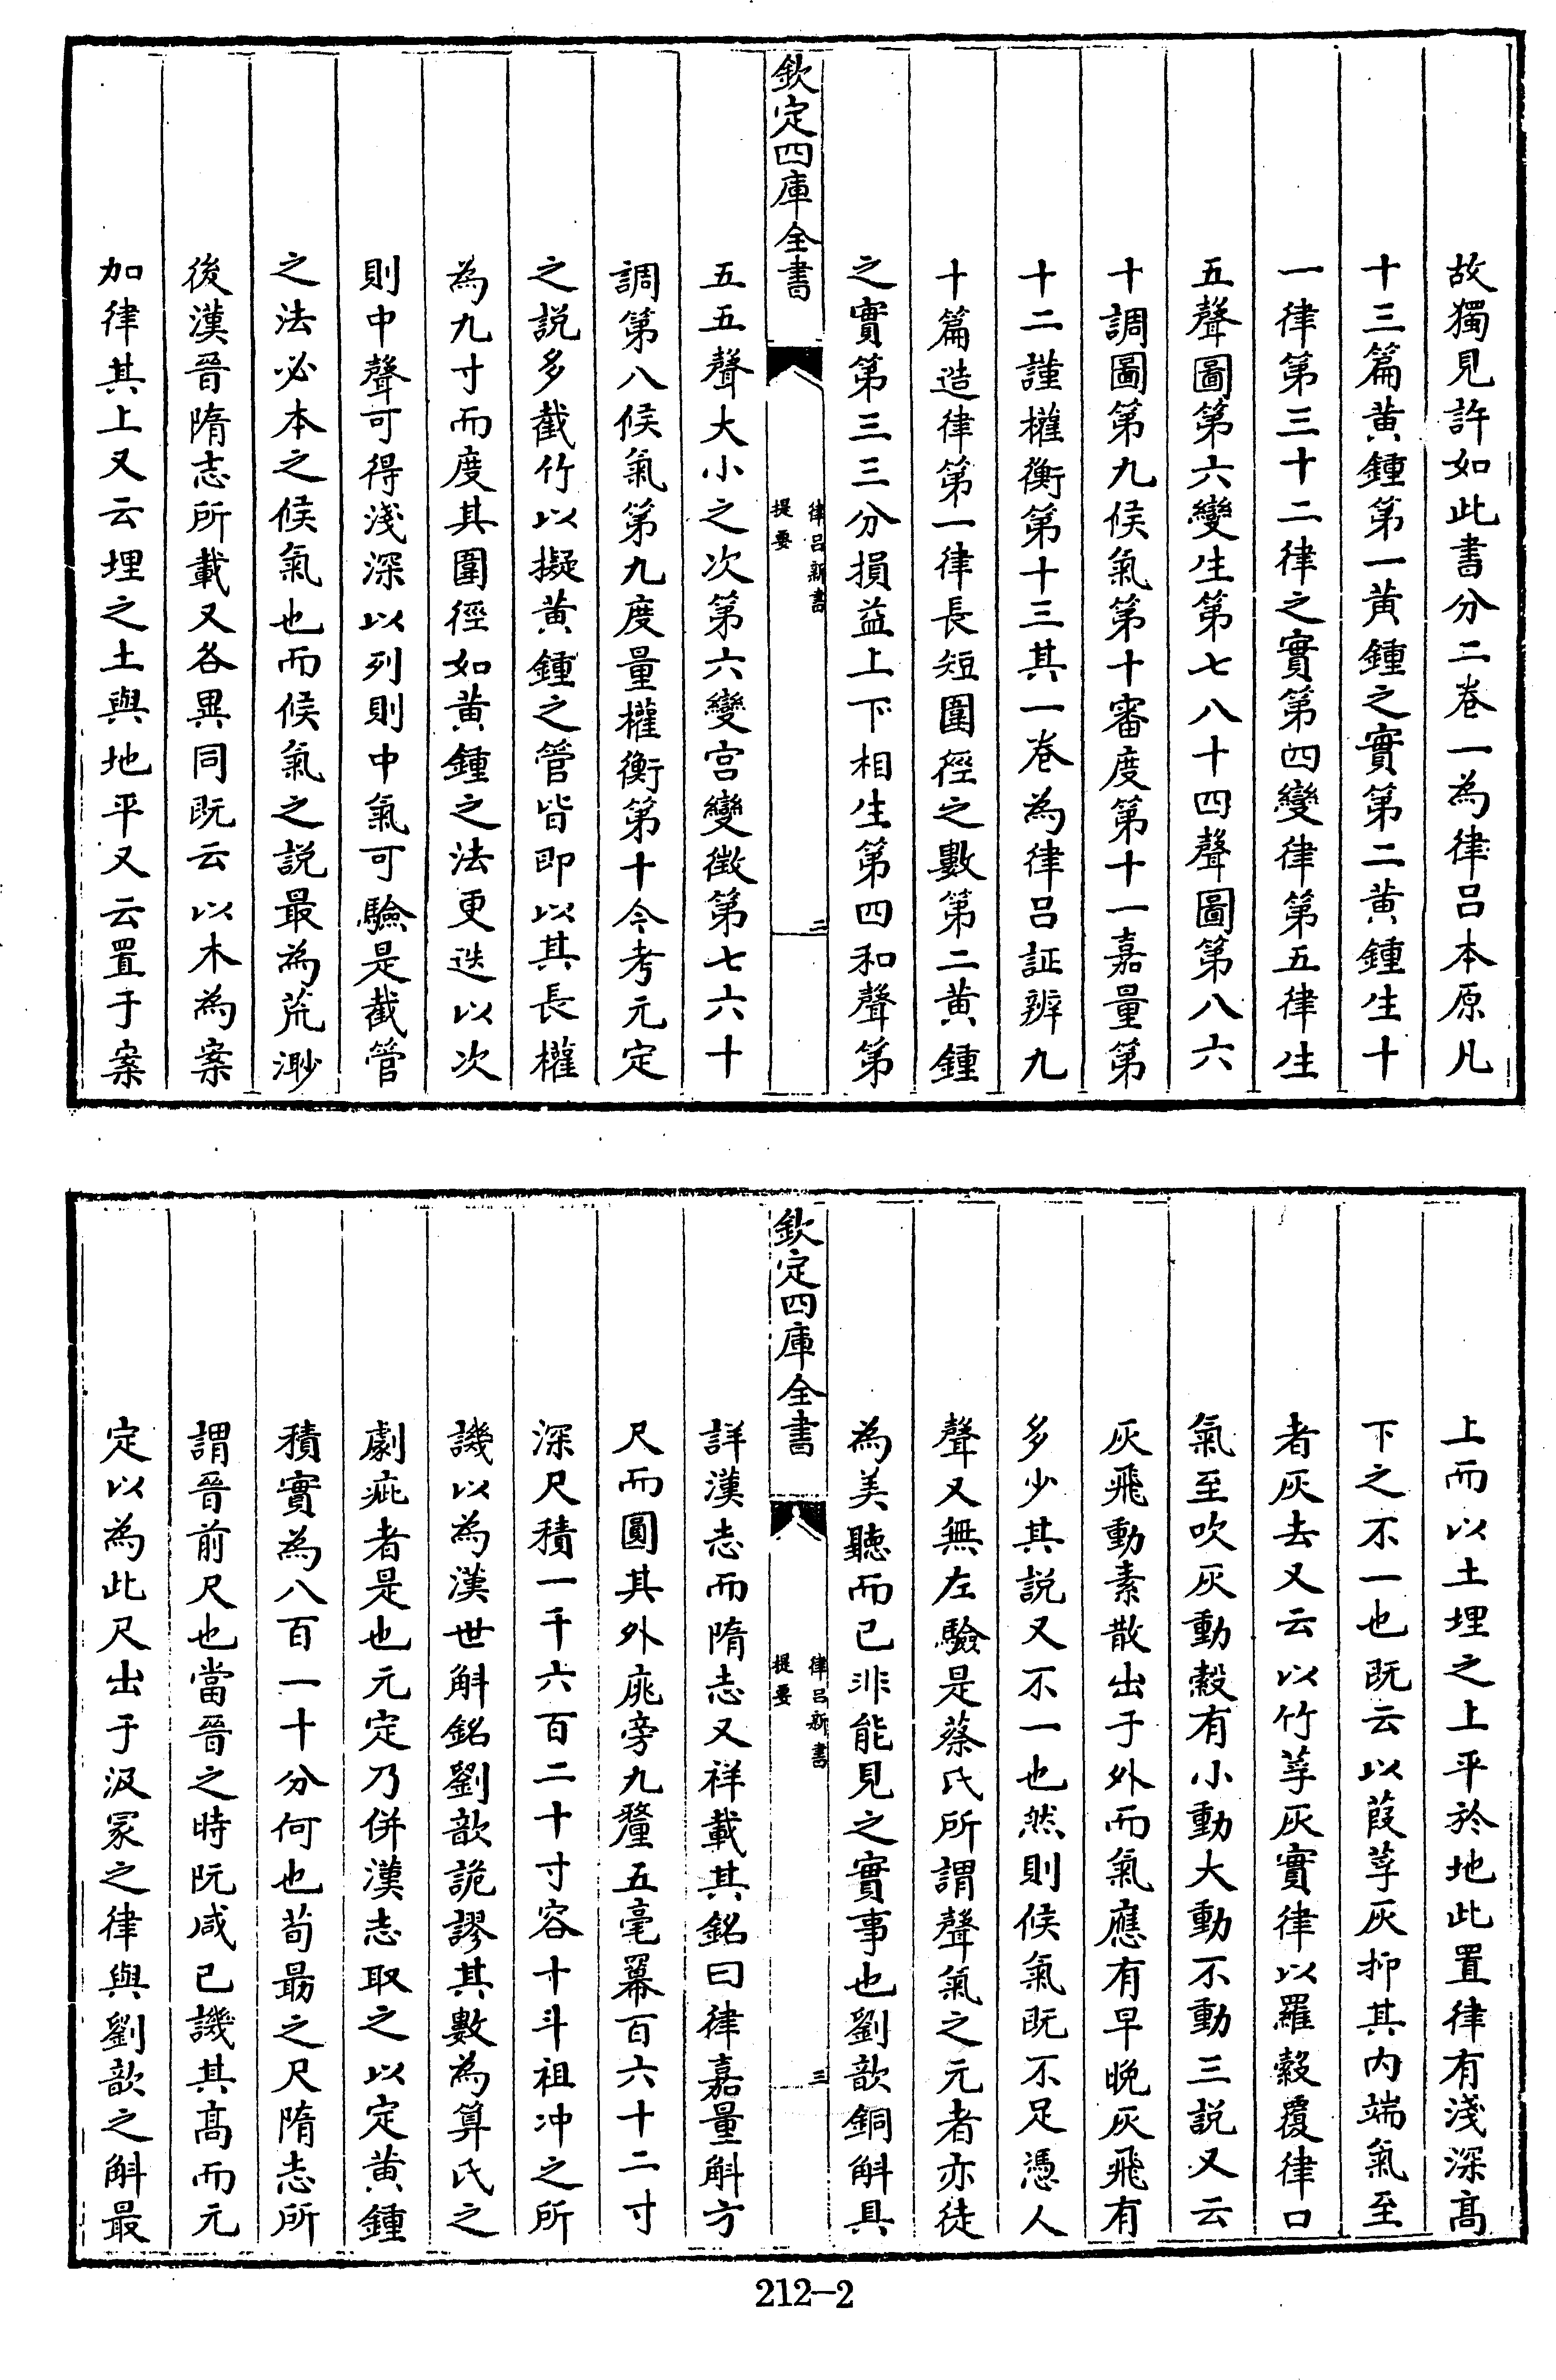 故獨見許如此書分二巻一為律呂本原凡
十三篇黄鍾第一黄鍾之實第二黄鍾生十
一律第三十二律之實第四變律第五律生
五聲圖第六變生第七八十四聲圖第八六
十調圖第九候氣第十審度第十一嘉量第
十二謹權衡第十三其一巻為律呂証辨九
十篇造律第一律長短圍徑之數第二黄鍾
之實第三三分損益上下相生第四和聲第
欽定四庫全書
律呂新書
提要
二
五五聲大小之次第六變宮變徴第七六十
調第八候氣第九度量權衡第十今考元定
之説多截竹以擬黄鍾之管皆即以其長權
為九寸而度其圍徑如黄鍾之法更迭以次
則中聲可得淺深以列則中氣可驗是截管
之法必本之候氣也而候氣之説最為荒渺
後漢晉隋志所載又各異同既云以木為案
加律其上又云埋之土與地平又云置于案
上而以土埋之上平於地此置律有淺深髙
下之不一也既云以葭莩灰抑其内端氣至
者灰去又云以竹莩灰實律以羅縠覆律口
氣至吹灰動縠有小動大動不動三説又云
灰飛動素散出于外而氣應有早晚灰飛有
多少其説又不一也然則候氣既不足憑人
聲又無左驗是蔡氏所謂聲氣之元者亦徒
為美聽而已非能見之實事也劉歆銅斛具
欽定四庫全書
律呂新書
提要
三
詳漢志而隋志又祥載其銘曰律嘉量斛方
尺而圓其外庣旁九釐五毫羃百六十二寸
深尺積一千六百二十寸容十斗祖冲之所
譏以為漢世斛銘劉歆詭謬其數為算氏之
劇疵者是也元定乃併漢志取之以定黄鍾
積實為八百一十分何也荀朂之尺隋志所
謂晉前尺也當晉之時阮咸已譏其髙而元
定以為此尺出于汲冢之律與劉歆之斛最
212-2